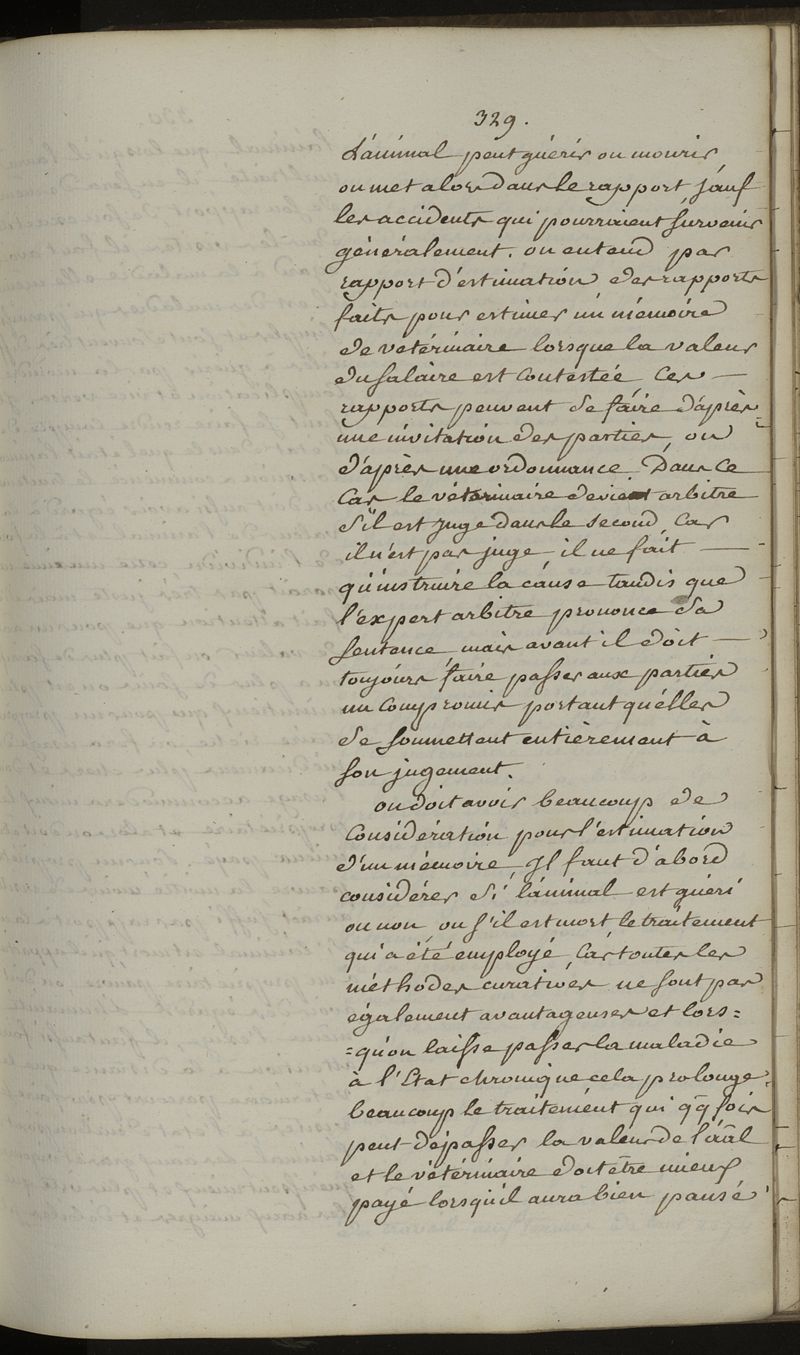 329.
L'animal peut guérir ou mourir
on met alors dans le rapport sauf
les accidents qui pourraient survenir
généralement. on entend par
rapport d'estimation des rapports
faits pour estimer un mémoire
de vétérinaire lorsque la valeur
du salaire est contestée Ces —
rapports peuvent se faire d'après
une invitation des parties, ou
d'après une ordonnance. Dans ce
cas le vétérinaire devient arbitre
s'il est juge dans le second, cas
il n'est pas juge, il ne fait —
qu'instruire la cause tandis que
l'expert arbitre prononce sa
sentence mais avant il doit —
toujours faire passer aux parties
un compromis portant quélles
se soumettent entièrement à
son jugement.
on doit avoir beaucoup de
Considération pour l'estimation
d'un mémoire, Il faut d'abord
considérer si l'animal est guéri
ou non, ou s'il est mort, le traitement
qui a été employé, Car toutes les
méthodes curatives ne sont pas
également avantageuses et lors=
=qu'on laisse passer la maladie
à l'Etat chronique cela prolonge
beaucoup le traitement qui qq fois
peut dépasser la valeur de l'aal
et le vétérinaire doit être mieux
payé lorsqu'il aura bien pansé